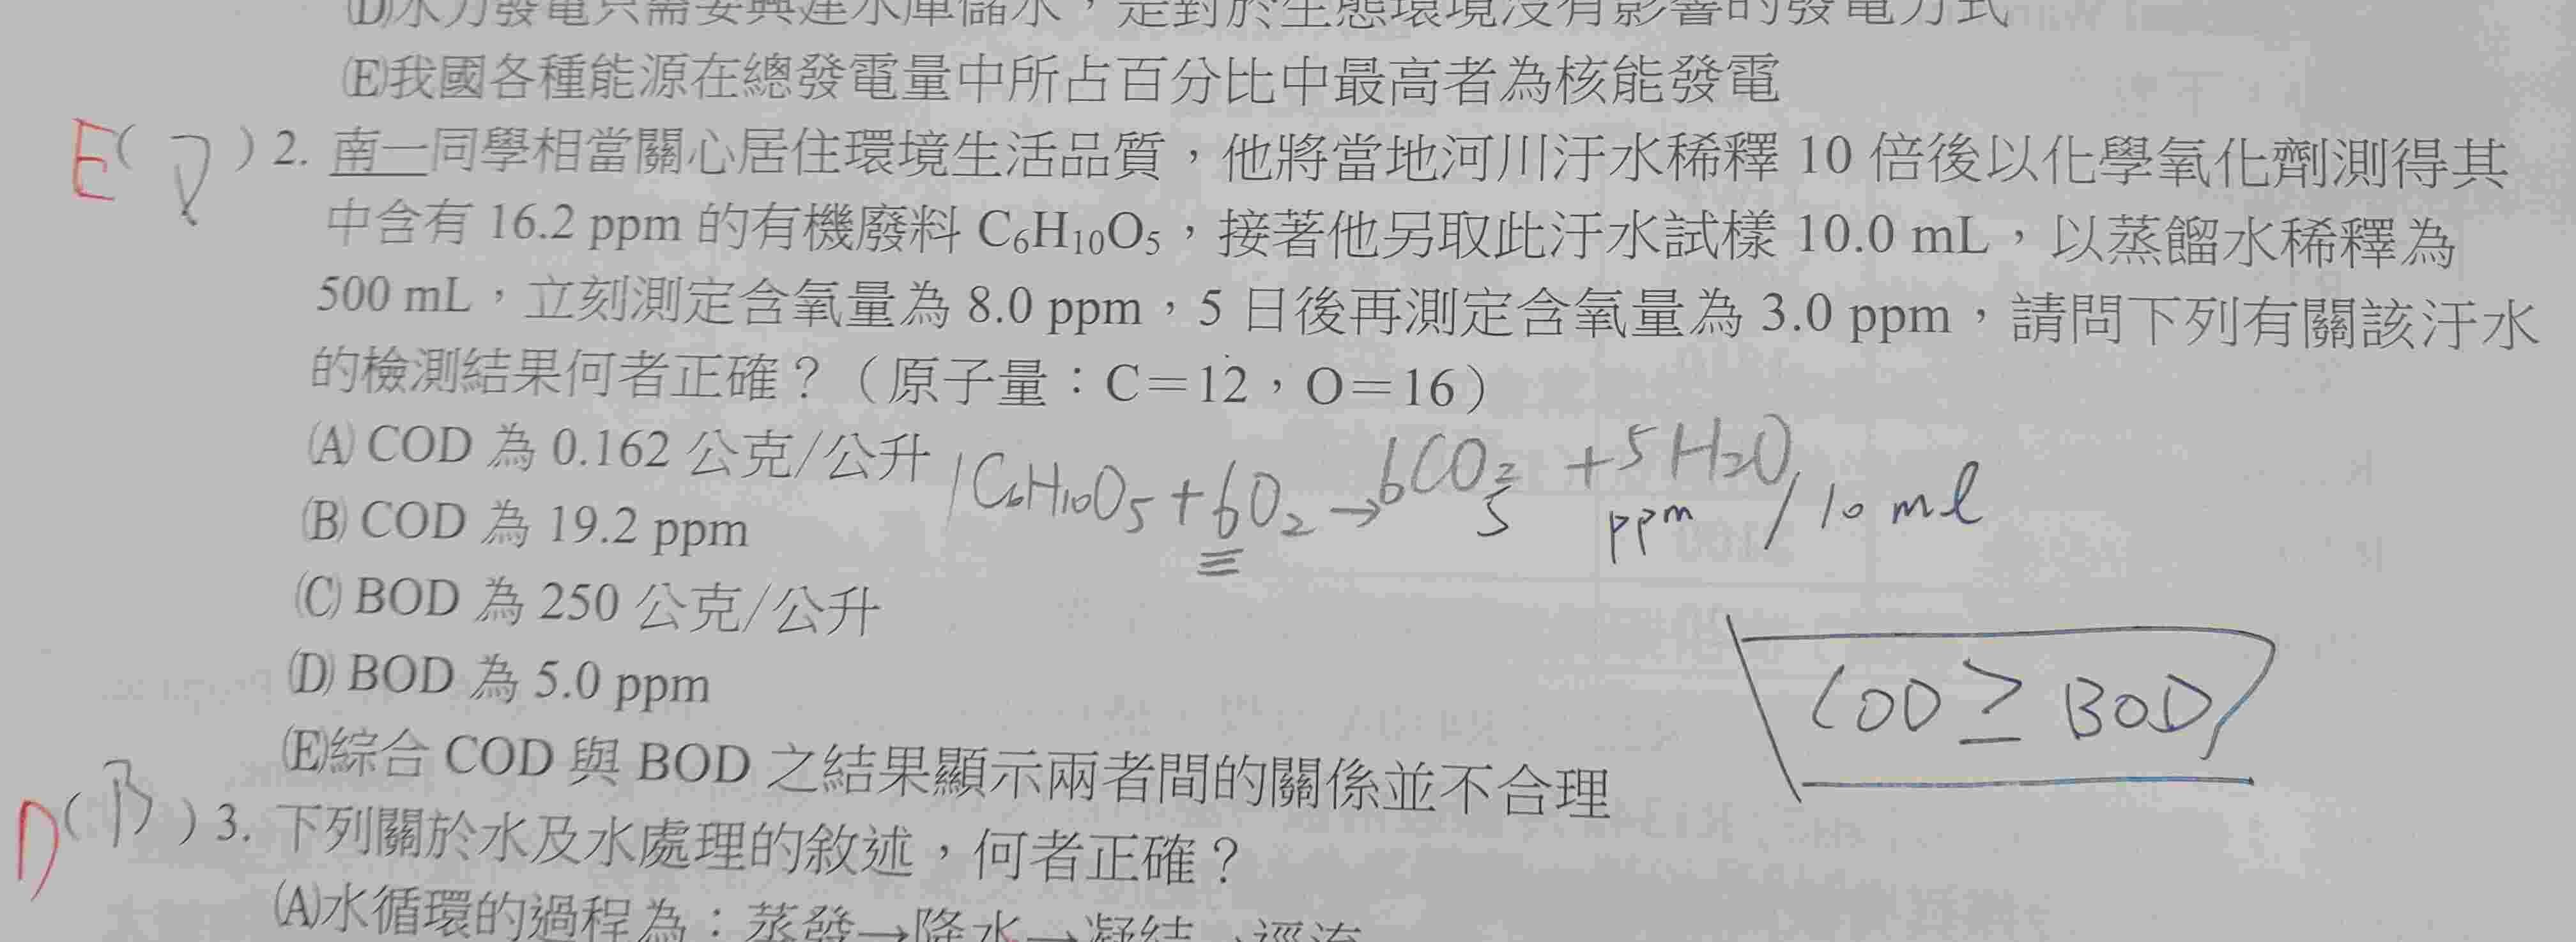 (D)水力發電只需要興建水庫儲水，是對於生態環境沒有影響的發電方式
(E)我國各種能源在總發電量中所占百分比中最高者為核能發電
E( D )2. 南一同學相當關心居住環境生活品質，他將當地河川汙水稀釋 10 倍後以化學氧化劑測得其
中含有 16.2 ppm 的有機廢料 C₆H₁₀O₅，接著他另取此汙水試樣 10.0 mL，以蒸餾水稀釋為
500 mL，立刻測定含氧量為 8.0 ppm，5 日後再測定含氧量為 3.0 ppm，請問下列有關該汙水
的檢測結果何者正確？（原子量：C＝12，O＝16）
(A) COD 為 0.162 公克/公升
1C₆H₁₀O₅ + 6O₂ → 6CO₂ + 5H₂O
(B) COD 為 19.2 ppm
5 ppm / 10 ml
(C) BOD 為 250 公克/公升
(D) BOD 為 5.0 ppm
COD ≥ BOD
(E)綜合 COD 與 BOD 之結果顯示兩者間的關係並不合理
D( B )3. 下列關於水及水處理的敘述，何者正確？
(A)水循環的過程為：蒸發→降水→凝結→逕流